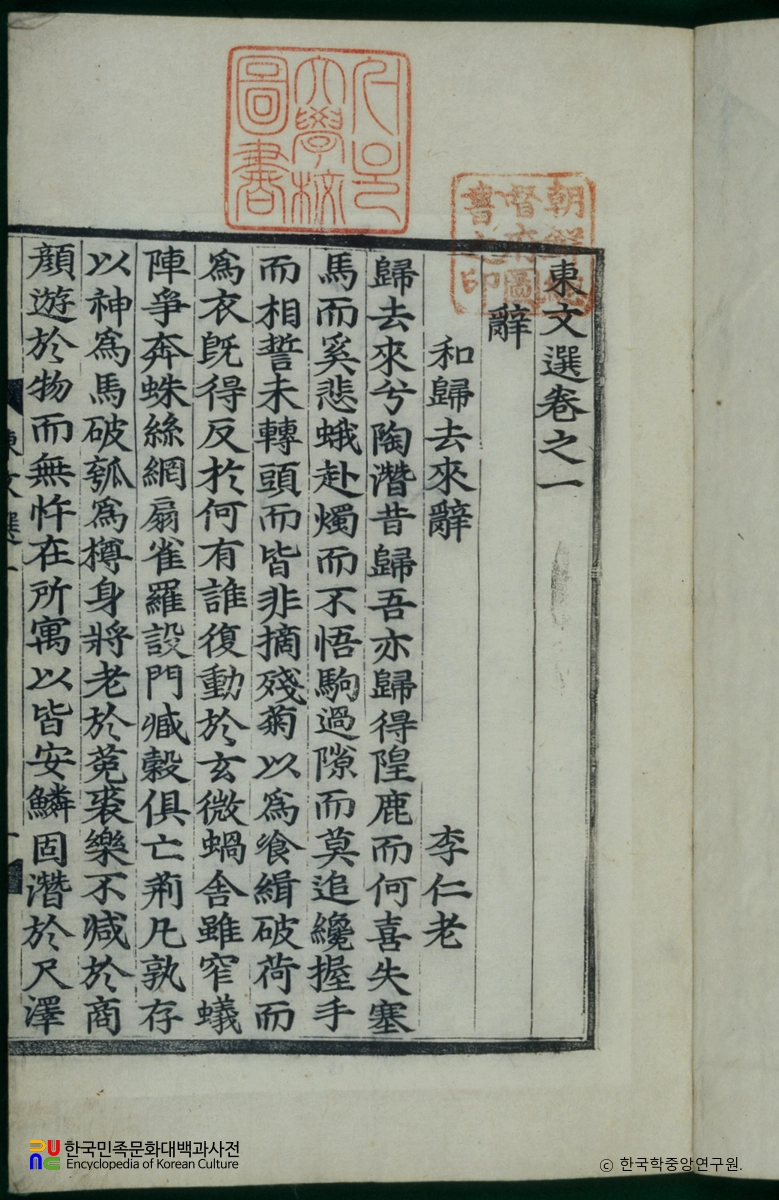 東文選卷之一
辭
和歸去來辭 李仁老
歸去來兮陶潛昔歸吾亦歸得隍鹿而何喜失塞
馬而奚悲蛾赴燭而不悟駒過隙而莫追纔握手
而相誓未轉頭而皆非摘殘菊以爲飡緝破荷而
爲衣旣得反於何有誰復動於玄微蝸舍雖窄蟻
陣爭奔蛛絲網扇雀羅設門臧穀俱亡荊凡孰存
以神爲馬破瓠爲樽身將老於菟裘樂不减於商
顔遊於物而無忤在所寓以皆安鱗固潛於尺澤
朝鮮總
督府圖
書之印
大學校
圖書
한국민족문화대백과사전
Encyclopedia of Korean Culture
ⓒ 한국학중앙연구원.